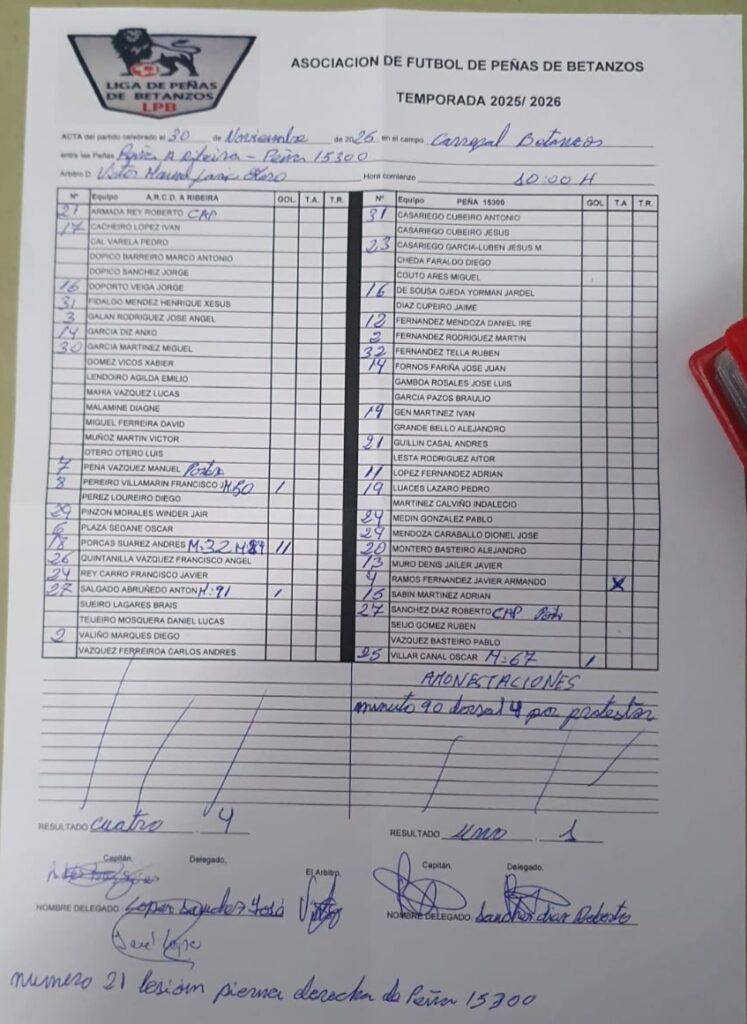 LIGA DE PEÑAS
DE BETANZOS
LPB
ASOCIACION DE FUTBOL DE PEÑAS DE BETANZOS
TEMPORADA 2025/ 2026
ACTA del partido celebrado el 30 de Noviembre de 2025 en el campo Carregal Betanzos
entre las Peñas Peña A Ribeira - Peña 15300
Arbitro D. Victor Hora comienzo 10:00 H
Nº Equipo A.R.C.D. A RIBEIRA GOL T.A. T.R.
21 ARMADA REY ROBERTO CAP
17 CACHEIRO LOPEZ IVAN
CAL VARELA PEDRO
DOPICO BARREIRO MARCO ANTONIO
DOPICO SANCHEZ JORGE
16 DOPORTO VEIGA JORGE
31 FIDALGO MENDEZ HENRIQUE XESUS
3 GALAN RODRIGUEZ JOSE ANGEL
14 GARCIA DIZ ANXO
30 GARCIA MARTINEZ MIGUEL
GOMEZ VICOS XABIER
LENDOIRO AGILDA EMILIO
MAHIA VAZQUEZ LUCAS
MALAMINE DIAGNE
MIGUEL FERREIRA DAVID
MUÑOZ MARTIN VICTOR
OTERO OTERO LUIS
7 PENA VAZQUEZ MANUEL Porte
8 PEREIRO VILLAMARIN FRANCISCO J M:50 1
PEREZ LOUREIRO DIEGO
29 PINZON MORALES WINDER JAIR
6 PLAZA SEOANE OSCAR
18 PORCAS SUAREZ ANDRES M:32 M:89 11
26 QUINTANILLA VAZQUEZ FRANCISCO ANGEL
24 REY CARRO FRANCISCO JAVIER
27 SALGADO ABRUÑEDO ANTON M:91 1
SUEIRO LAGARES BRAIS
TEIJEIRO MOSQUERA DANIEL LUCAS
2 VALIÑO MARQUES DIEGO
VAZQUEZ FERREIROA CARLOS ANDRES
Nº Equipo PEÑA 15300 GOL T.A T.R.
31 CASARIEGO CUBEIRO ANTONIO
CASARIEGO CUBEIRO JESUS
23 CASARIEGO GARCIA-LUBEN JESUS M
CHEDA FARALDO DIEGO
COUTO ARES MIGUEL
16 DE SOUSA OJEDA YORMAN JARDEL
DIAZ CUPEIRO JAIME
12 FERNANDEZ MENDOZA DANIEL IRE
2 FERNANDEZ RODRIGUEZ MARTIN
32 FERNANDEZ TELLA RUBEN
14 FORNOS FARIÑA JOSE JUAN
GAMBOA ROSALES JOSE LUIS
GARCIA PAZOS BRAULIO
19 GEN MARTINEZ IVAN
GRANDE BELLO ALEJANDRO
21 GUILLIN CASAL ANDRES
LESTA RODRIGUEZ AITOR
11 LOPEZ FERNANDEZ ADRIAN
19 LUACES LAZARO PEDRO
MARTINEZ CALVIÑO INDALECIO
24 MEDIN GONZALEZ PABLO
29 MENDOZA CARABALLO DIONEL JOSE
20 MONTERO BASTEIRO ALEJANDRO
13 MURO DENIS JAILER JAVIER
4 RAMOS FERNANDEZ JAVIER ARMANDO X
15 SABIN MARTINEZ ADRIAN
27 SANCHEZ DIAZ ROBERTO CAP Porte
SEIJO GOMEZ RUBEN
VAZQUEZ BASTEIRO PABLO
25 VILLAR CANAL OSCAR M:67 1
AMONESTACIONES
minuto 90 dorsal 4 por protestar
RESULTADO cuatro 4
RESULTADO uno 1
Capitán, Delegado, El Arbitro, Capitán, Delegado,
NOMBRE DELEGADO Lopez Sanchez José
NOMBRE DELEGADO Sanchez Diaz Roberto
José Lopez
numero 21 lesión pierna derecha de Peña 15300